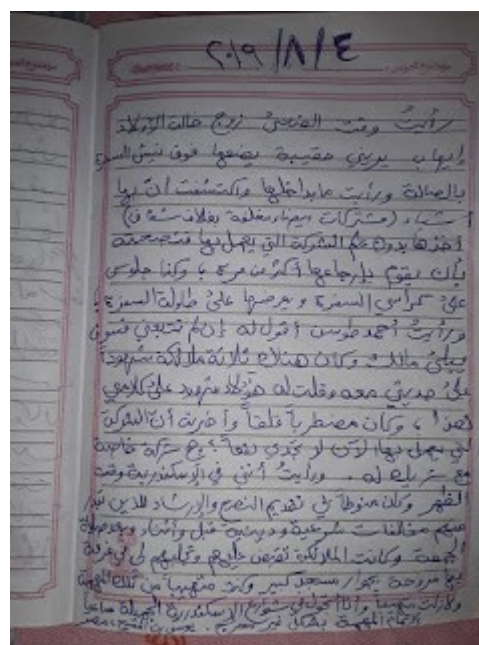 ٢٠١٩/٨/٤
رأيتُ وقت الضحى زوج خالة الأولاد
إيهاب يريني حقيبة يضعها فوق نيش السفرة
بالصالة ورأيت ما بداخلها واكتشفت أن بها
أشياء (مشتركات بيضاء مغلفة بغلاف شفاف)
أخذها بدون علم الشركة التي يعمل بها فنصحته
بأن يقوم بإرجاعها أكثر من مرة، وكنا جلوس
على كراسي السفرة و على طاولة السفرة،
ورأيتُ أحمد أقول له إن لم تتبعني فسوف
مالك وكان هناك ثلاثة ملائكة شهوداً
على حديثي معه وقلت له هؤلاء شهود على كلامي
هذا، وكان مضطرباً قلقاً وأخبرته أن الشركة
التي يعمل بها الآن لا تجدي نفعاً شركة خاصة
مع شريك له. ورأيتُ أنني في الإسكندرية وقت
الظهر وكان منوطاً بي تقديم النصح والإرشاد للذين
منهم مخالفات شرعية ودينية قبل وأثناء وبعد صلاة
الجمعة وكانت الملائكة تقبض عليهم لي في غرفة
بها مروحة بجوار مسجد كبير وكنت متهيباً من تلك المهمة
ولازلت متهيباً وأنا أتجول في شوارع الإسكندرية الجميلة ساعياً
لإتمام المهمة بشكل غير . ، مصر